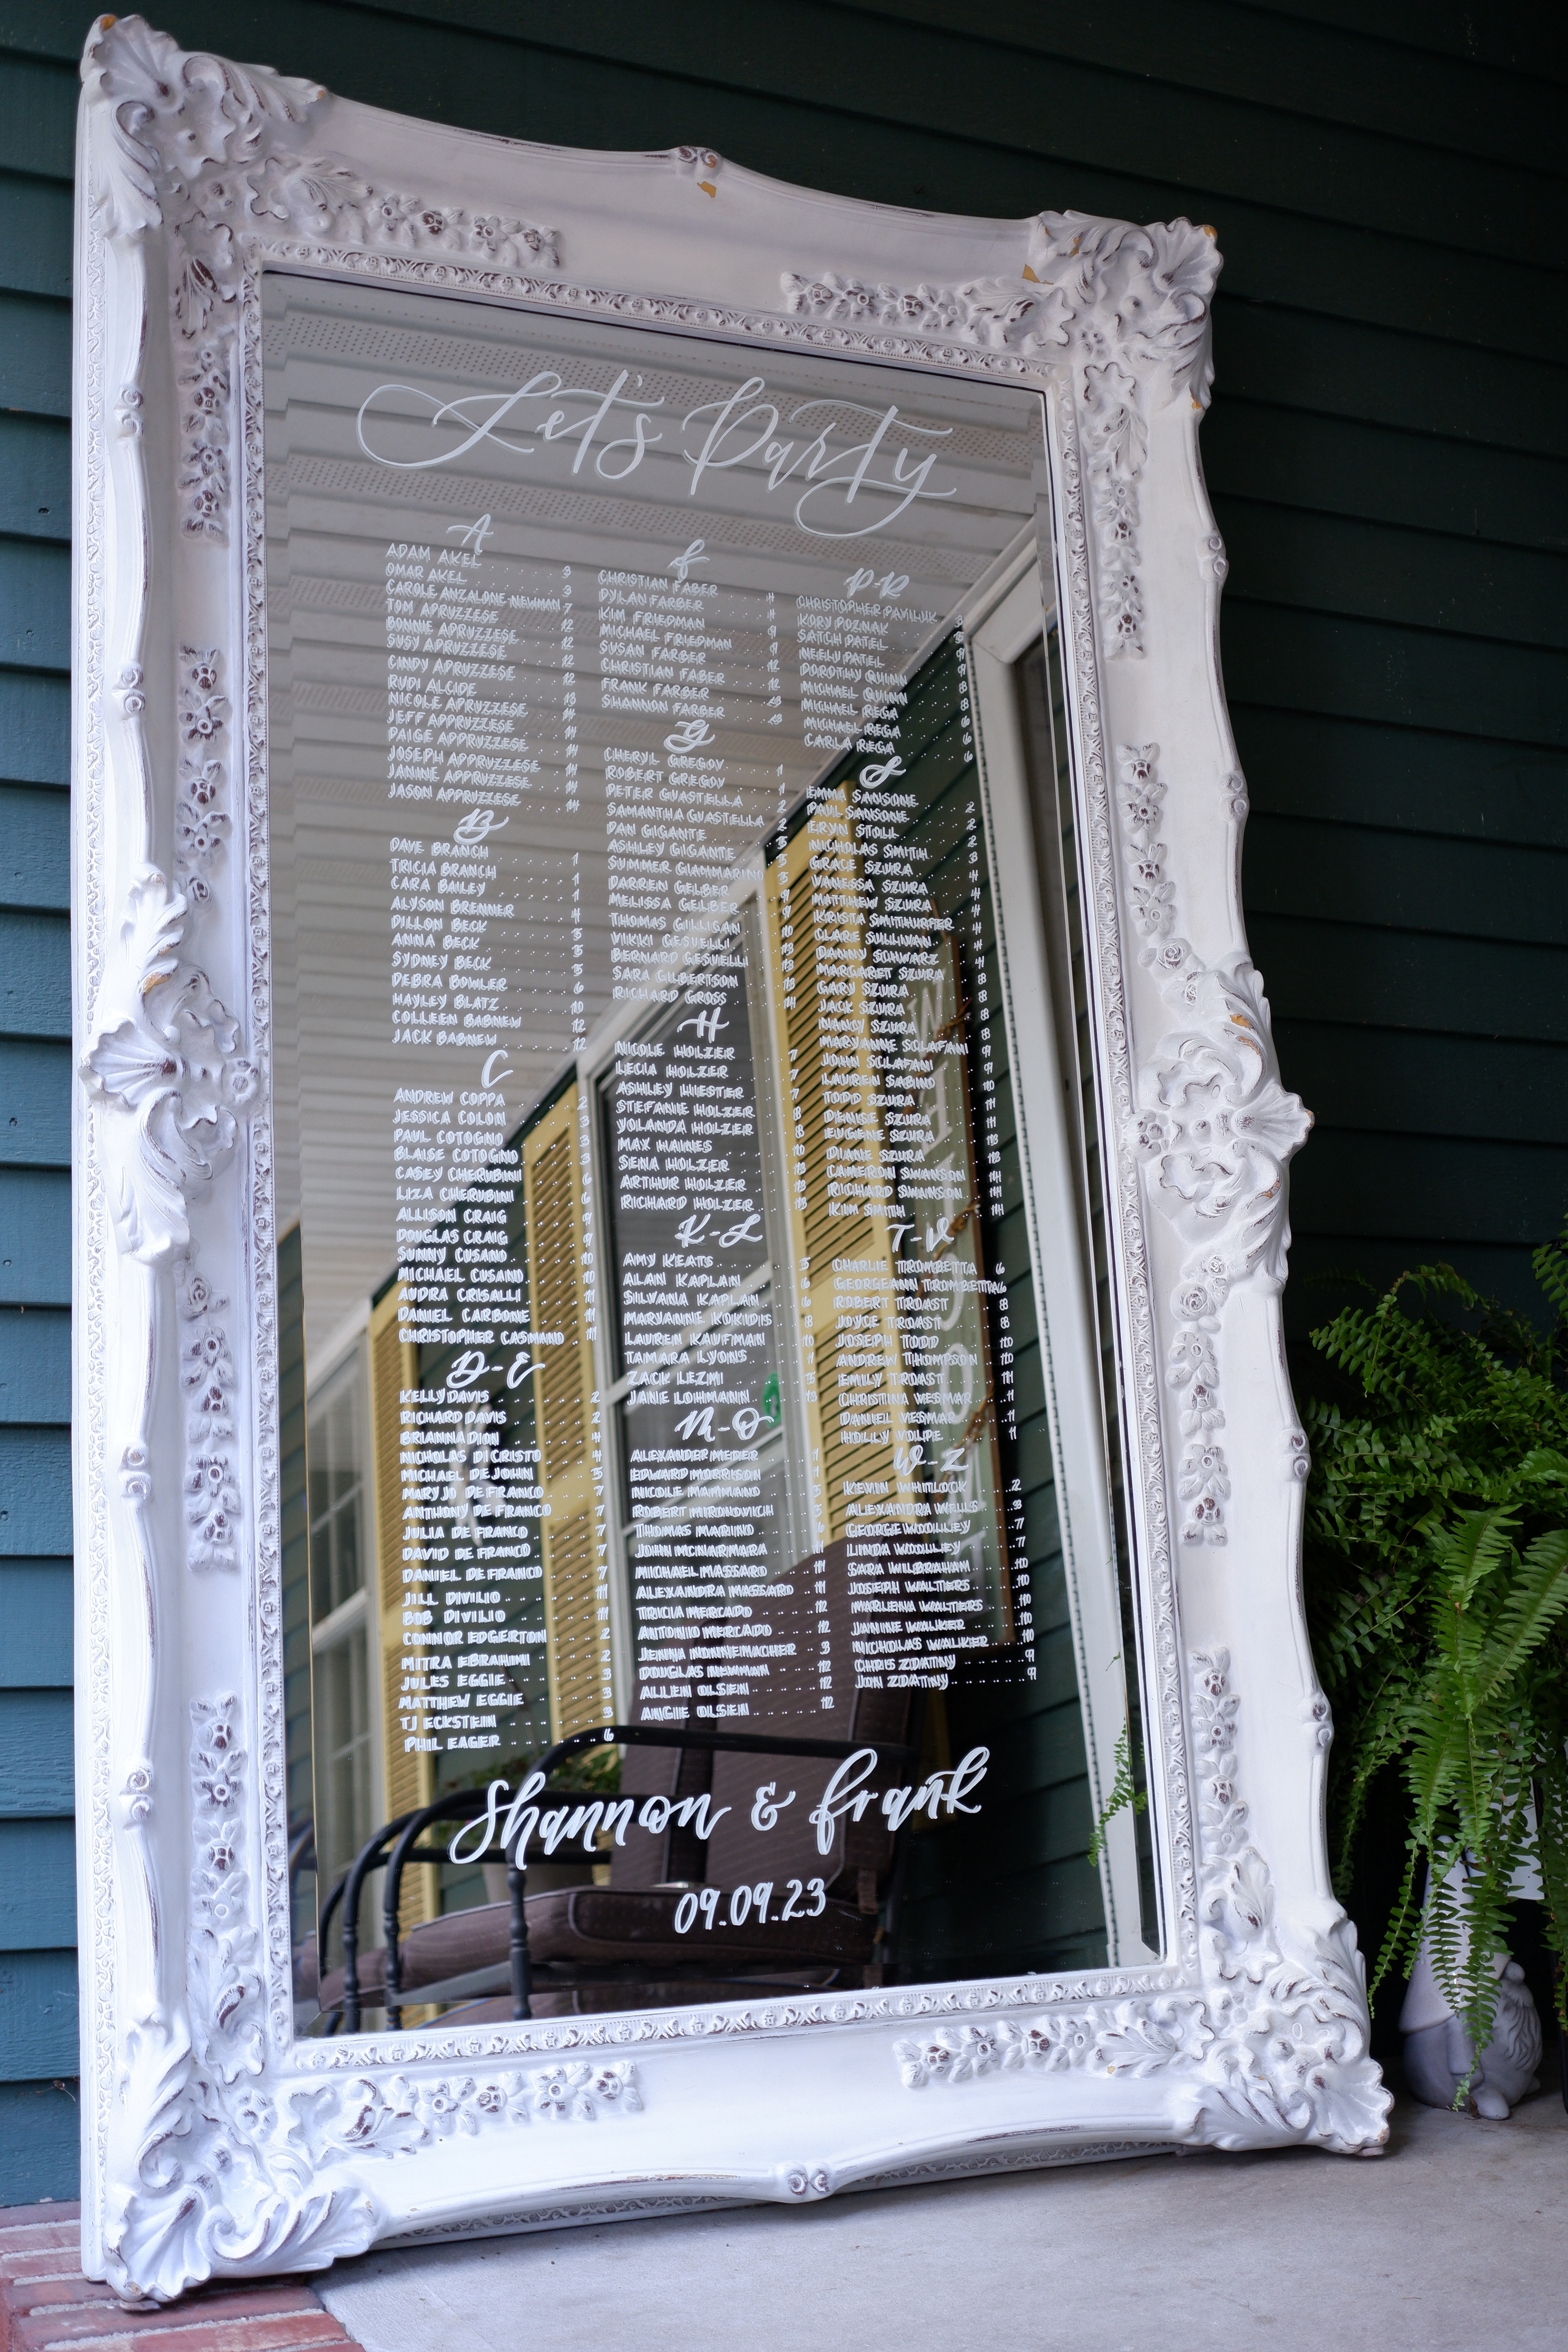 Let's Party
A
ADAM AKEL
OMAR AKEL . . . 3
CAROLE ANZALONE-NEWMAN . . . 3
TOM APRUZZESE . . . 7
BONNIE APRUZZESE . . . 12
SUSY APRUZZESE . . . 12
CINDY APRUZZESE . . . 12
RUDI ALCIDE . . . 12
NICOLE APRUZZESE . . . 13
JEFF APPRUZZESE . . . 14
PAIGE APPRUZZESE . . . 14
JOSEPH APPRUZZESE . . . 14
JANINE APPRUZZESE . . . 14
JASON APPRUZZESE . . . 14
B
DAVE BRANCH . . . 1
TRICIA BRANCH . . . 1
CARA BAILEY . . . 1
ALYSON BRENNER . . . 4
DILLON BECK . . . 5
ANNA BECK . . . 5
SYDNEY BECK . . . 5
DEBRA BOWLER . . . 6
HAYLEY BLATZ . . . 10
COLLEEN BABNEW . . . 12
JACK BABNEW . . . 12
C
ANDREW COPPA . . . 2
JESSICA COLON . . . 3
PAUL COTOGNO . . . 3
BLAISE COTOGNO . . . 3
CASEY CHERUBINI . . . 6
LIZA CHERUBINI . . . 6
ALLISON CRAIG . . . 9
DOUGLAS CRAIG . . . 9
SUNNY CUSANO . . . 10
MICHAEL CUSANO . . . 10
AUDRA CRISALLI . . . 11
DANIEL CARBONE . . . 11
CHRISTOPHER CASMANO . . . 11
D-E
KELLY DAVIS . . . 2
RICHARD DAVIS . . . 2
BRIANNA DION . . . 4
NICHOLAS DI CRISTO . . . 4
MICHAEL DE JOHN . . . 5
MARY JO DE FRANCO . . . 7
ANTHONY DE FRANCO . . . 7
JULIA DE FRANCO . . . 7
DAVID DE FRANCO . . . 7
DANIEL DE FRANCO . . . 7
JILL DIVILIO . . . 11
BOB DIVILIO . . . 11
CONNOR EDGERTON . . . 2
MITRA EBRAHIMI . . . 2
JULES EGGIE . . . 3
MATTHEW EGGIE . . . 3
TJ ECKSTEIN . . . 3
PHIL EAGER . . . 6
f
CHRISTIAN FABER
DYLAN FARBER
KIM FRIEDMAN
MICHAEL FRIEDMAN
SUSAN FARBER
CHRISTIAN FABER
FRANK FARBER
SHANNON FARBER
G
CHERYL GREGOV . . . 1
ROBERT GREGOV . . . 1
PETER GUASTELLA . . . 2
SAMANTHA GUASTELLA . . . 2
DAN GIGANTE
ASHLEY GIGANTE
SUMMER GIAMMARINO
DARREN GELBER . . . 9
MELISSA GELBER . . . 9
THOMAS GILLIGAN . . . 10
VIKKI GESUELLI . . . 13
BERNARD GESUELLI . . . 13
SARA GILBERTSON . . . 13
RICHARD GROSS . . . 14
H
NICOLE HOLZER . . . 7
LECIA HOLZER . . . 7
ASHLEY HIESTER . . . 7
STEFANIE HOLZER . . . 8
YOLANDA HOLZER . . . 8
MAX HAINES . . . 10
SENA HOLZER . . . 13
ARTHUR HOLZER . . . 13
RICHARD HOLZER . . . 13
K-L
AMY KEATS . . . 5
ALAN KAPLAN . . . 6
SILVANA KAPLAN . . . 6
MARYANNE KOKIDIS . . . 8
LAUREN KAUFMAN . . . 10
TAMARA LYONS . . . 1
ZACK LEZMI . . . 5
JANE LOHMANN . . . 13
M-O
ALEXANDER MEDER . . . 1
EDWARD MORRISON . . . 1
NICOLE MAMMANO . . . 3
ROBERT MIRONOVICH . . . 3
THOMAS MARINO . . . 6
JOHN MCNARMARA . . . 11
MICHAEL MASSARO . . . 11
ALEXANDRA MASSARO . . . 11
TRICIA MERCADO . . . 12
ANTONIO MERCADO . . . 12
JENNA NONNEMACHER . . . 3
DOUGLAS NEWMAN . . . 12
ALLEN OLSEN . . . 12
ANGIE OLSEN . . . 12
P-R
CHRISTOPHER PAVILUK
KORY POZNAK
SATCH PATEL
NEELU PATEL
DOROTHY QUINN
MICHAEL QUINN
MICHAEL REGA
MICHAEL REGA . . . 6
CARLA REGA . . . 6
S
EMMA SANSONE . . . 2
PAUL SANSONE . . . 2
ERYN STOLL . . . 2
NICHOLAS SMITH . . . 3
GRACE SZURA . . . 4
VANESSA SZURA . . . 4
MATTHEW SZURA . . . 4
KRISTA SMITHURFER . . . 4
CLARE SULLIVAN . . . 4
DANNY SCHWARZ . . . 4
MARGARET SZURA . . . 8
GARY SZURA . . . 8
JACK SZURA . . . 8
NANCY SZURA . . . 8
MARYANNE SCLAFANI . . . 9
JOHN SCLAFANI . . . 9
LAUREN SABINO . . . 10
TODD SZURA . . . 11
DENISE SZURA . . . 11
EUGENE SZURA . . . 13
DIANE SZURA . . . 13
CAMERON SWANSON . . . 14
RICHARD SWANSON . . . 14
KIM SMITH . . . 14
T-V
CHARLIE TROMBETTA . . . 6
GEORGEANN TROMBETTA 6
ROBERT TROAST . . . 8
JOYCE TROAST . . . 8
JOSEPH TODD . . . 10
ANDREW THOMPSON . . . 10
EMILY TROAST . . . 11
CHRISTINA VESMAR . . . 1
DANIEL VESMAR . . . 1
HOLLY VOLPE . . . 1
W-Z
KEVIN WHITLOCK . . . 2
ALEXANDRA WELLS . . . 3
GEORGE WOOLLEY . . . 7
LINDA WOOLLEY . . . 7
SARA WILBRAHAM . . . 10
JOSEPH WALTERS . . . 10
MARLENA WALTERS . . . 10
JANINE WALKER . . . 10
NICHOLAS WALKER . . . 10
CHRIS ZDATNY . . . 9
JON ZDATNY . . . 9
Shannon & frank
09.09.23